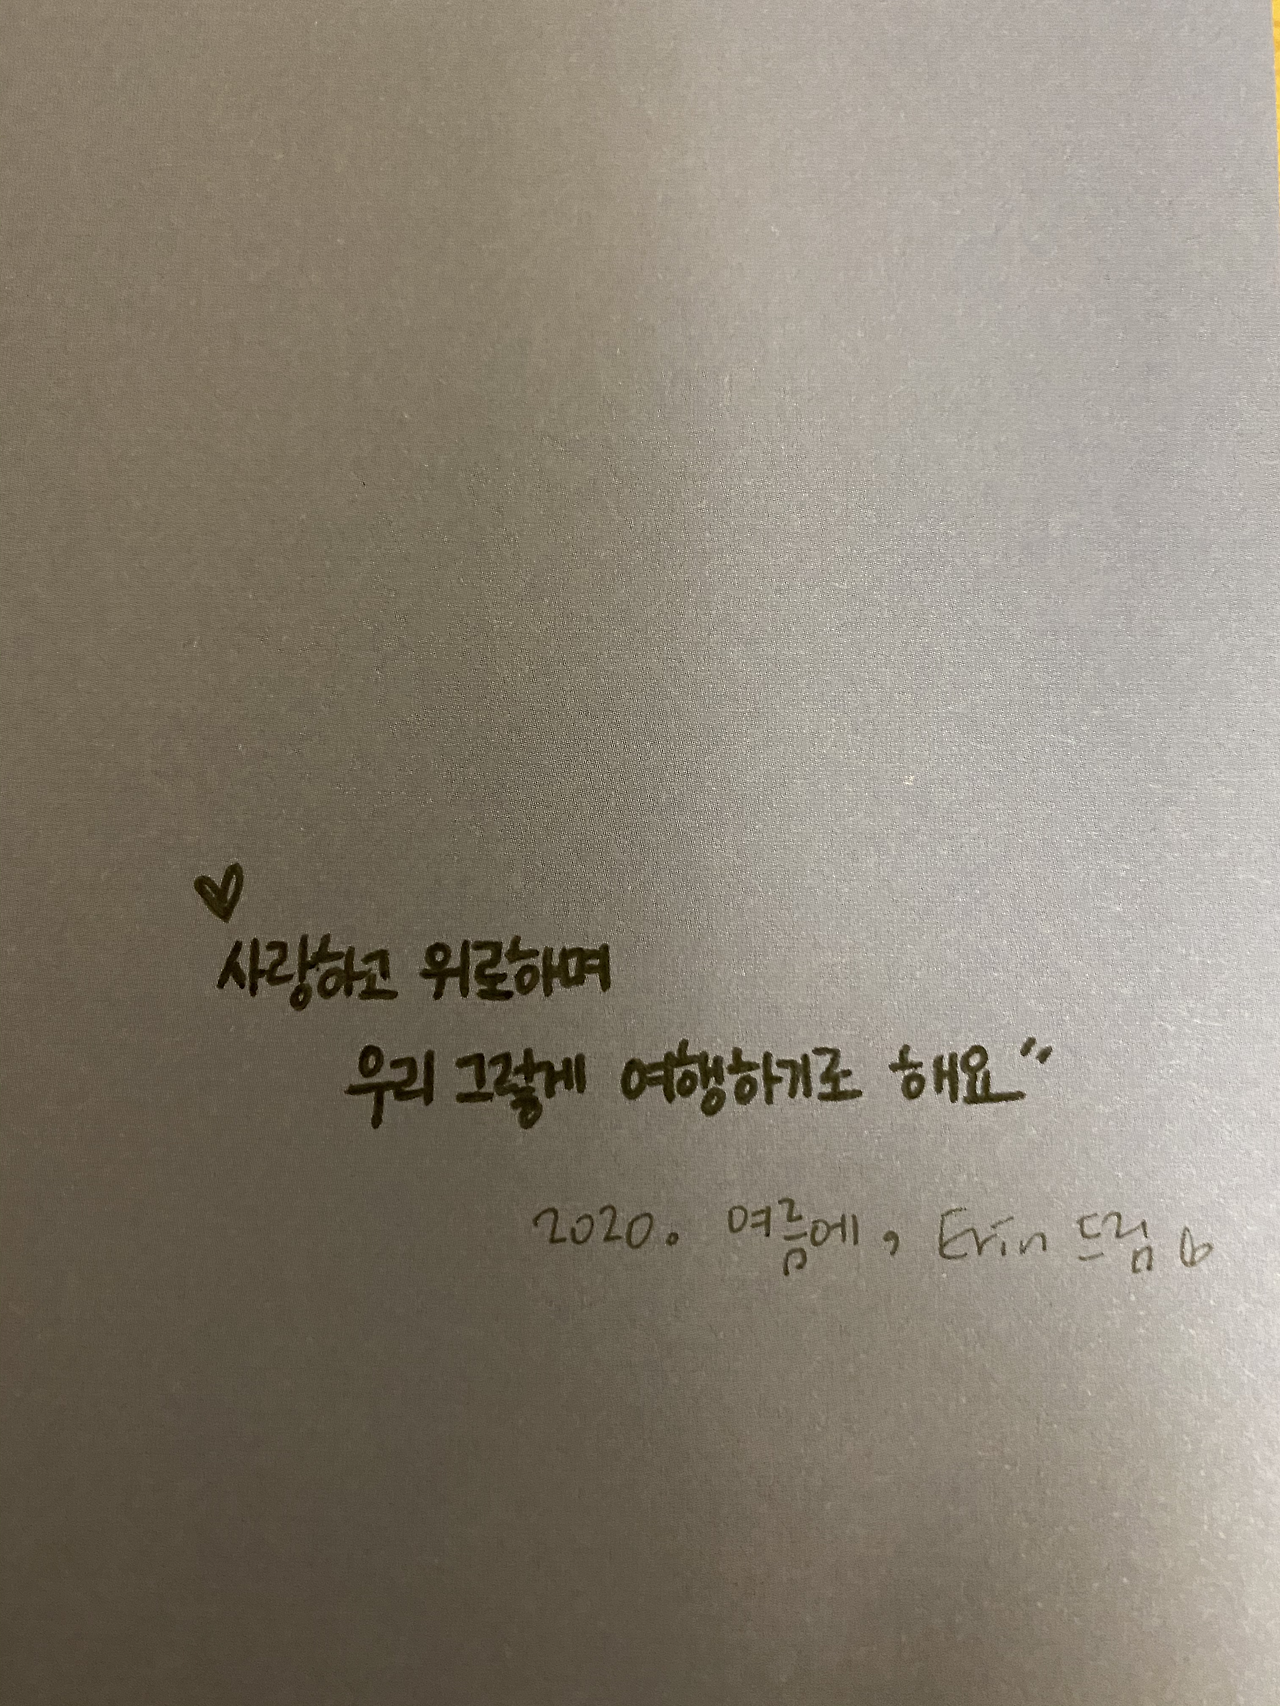 ♥
사랑하고 위로하며
우리 그렇게 여행하기로 해요"
2020. 여름에, Erin 드림